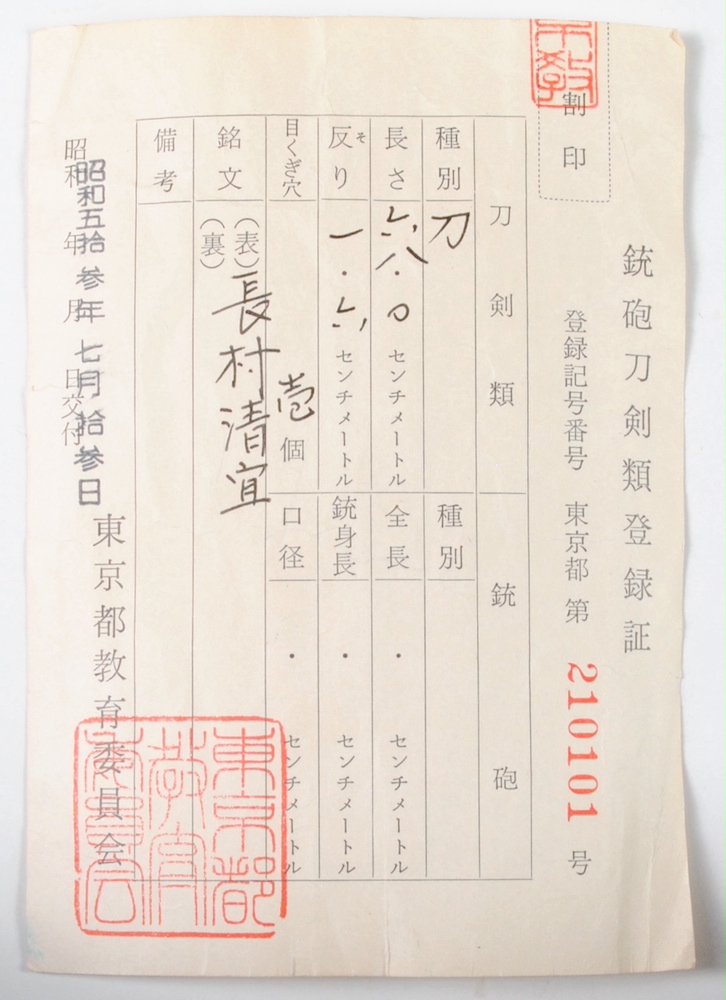 銃砲刀剣類登録証
割印
登録記号番号 東京都 第 210101 号
刀剣類
銃砲
種別 刀
種別
長さ 六八・〇 センチメートル
全長 ・ センチメートル
反り そ 一・六 センチメートル
銃身長 ・ センチメートル
目くぎ穴 壱個
口径 ・ センチメートル
銘文 (表) 長村清宜
(裏)
備考
昭和 年 月 日交付
昭和五拾参年七月拾参日
東京都教育委員会
東京都
教育
委員会